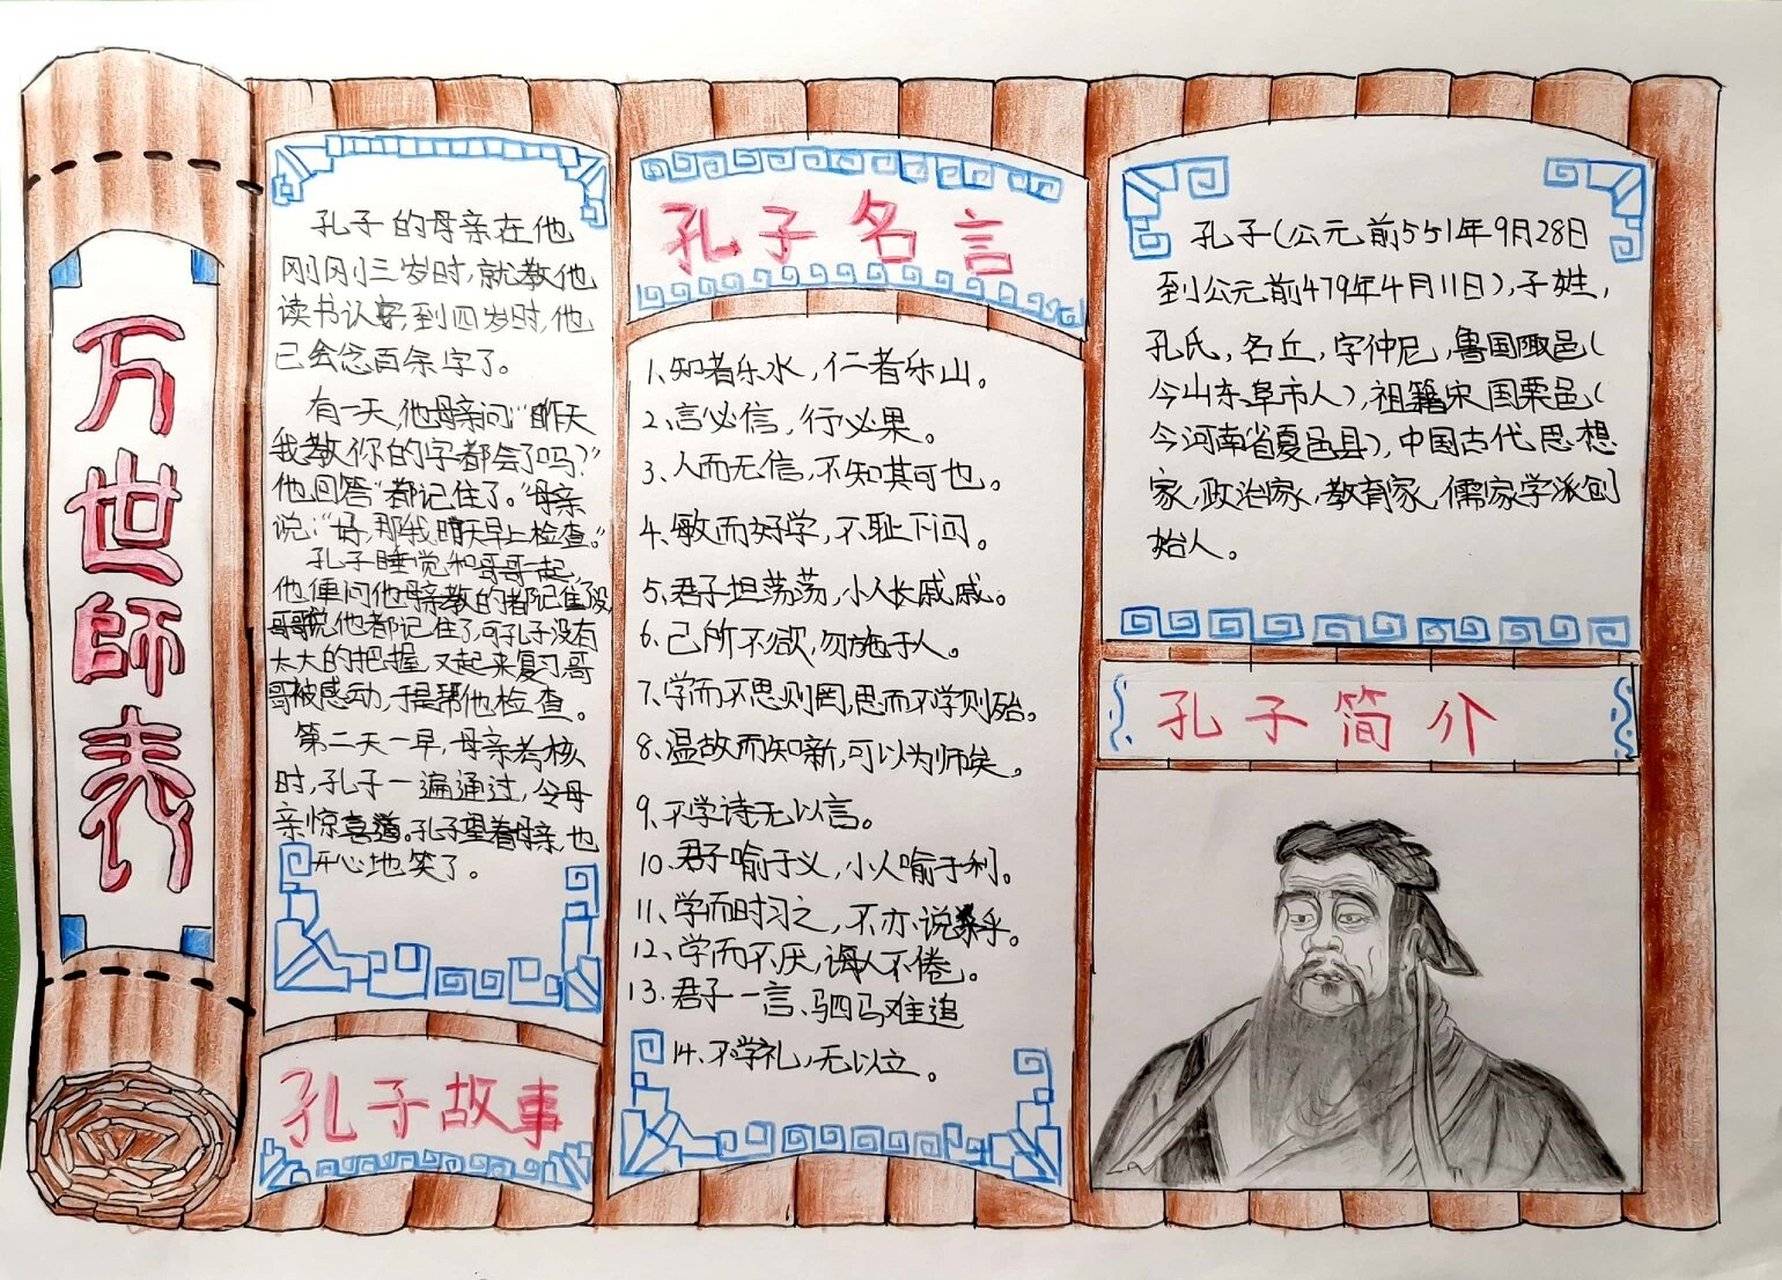 万世師表
孔子的母亲在他
刚刚三岁时,就教他
读书认字,到四岁时,他
已会念百余字了。
有一天,他母亲问“昨天
我教你的字都会了吗?”
他回答“都记住了。”母亲
说:“好,那我明天早上检查。”
孔子睡觉和哥哥一起,
他便问他母亲教的都记住没,
哥哥说他都记住了,可孔子没有
太大的把握,又起来复习,哥
哥被感动,于是帮他检查。
第二天一早,母亲考核
时,孔子一遍通过,令母
亲惊喜道。孔子望着母亲,也
开心地笑了。
孔子故事
孔子名言
1、知者乐水,仁者乐山。
2、言必信,行必果。
3、人而无信,不知其可也。
4、敏而好学,不耻下问。
5、君子坦荡荡,小人长戚戚。
6、己所不欲,勿施于人。
7、学而不思则罔,思而不学则殆。
8、温故而知新,可以为师矣。
9、不学诗无以言。
10、君子喻于义,小人喻于利。
11、学而时习之,不亦说乎。
12、学而不厌,诲人不倦。
13、君子一言、驷马难追
14、不学礼,无以立。
孔子(公元前551年9月28日
到公元前479年4月11日),子姓,
孔氏,名丘,字仲尼,鲁国陬邑(
今山东阜市人),祖籍宋国栗邑(
今河南省夏邑县),中国古代思想
家,政治家,教育家,儒家学派创
始人。
孔子简介